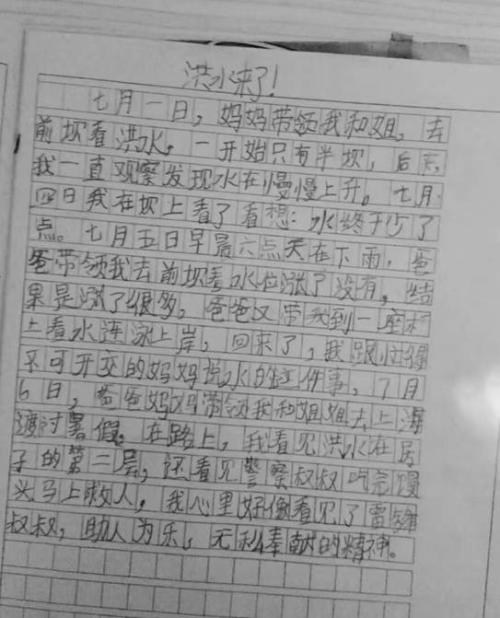 洪水来了!
七月一日，妈妈带领我和姐，去
前坝看洪水，一开始只有半坝，后来
我一直观察发现水在慢慢上升。七月
四日我在坝上看了看想：水终于少了
点。七月五日早晨六点天在下雨，爸
爸带领我去前坝看水位涨了没有，结
果是涨了很多。爸爸又带我到一座桥
上看水连泳上岸，回来了，我跟忙得
不可开交的妈妈说水的这件事，7月
6日，爸爸妈妈带领我和姐姐去上海
渡过暑假。在路上，我看见洪水在房
子的第二层，还看见警察叔叔吃完馒
头马上救人，我心里好像看见了雷锋
叔叔，助人为乐，无私奉献的精神。